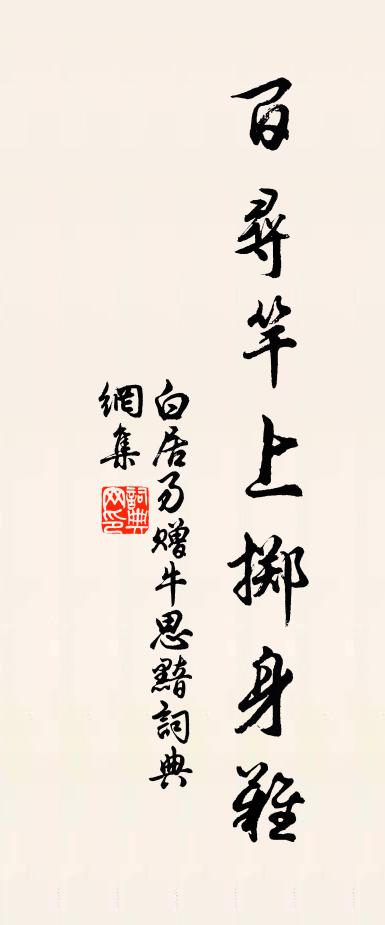 百尋竿上擲身難
白居易贈牛思黯詞典
網集
詞典
网印